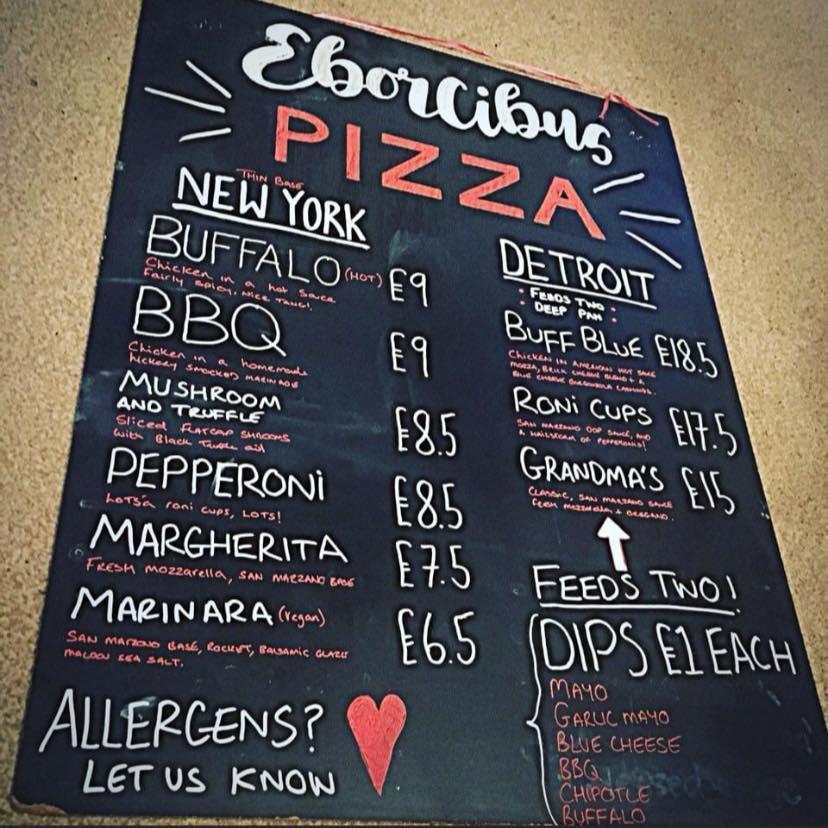 EborCibus
PIZZA
THIN BASE
NEW YORK
BUFFALO (HOT) £9
Chicken in a hot sauce
Fairly spicy, nice tang!
BBQ £9
Chicken in a homemade
hickory smoked marinade
MUSHROOM
AND TRUFFLE £8.5
Sliced flatcap shrooms
with Black Truffle oil
PEPPERONI £8.5
Lotsa roni cups, LOTS!
MARGHERITA £7.5
FRESH MOZZARELLA, SAN MARZANO BASE
MARINARA (vegan) £6.5
SAN MARZANO BASE, ROCKET, BALSAMIC GLAZE
MALDON SEA SALT.
ALLERGENS?
LET US KNOW
DETROIT
: FEEDS TWO :
DEEP PAN
BUFF BLUE £18.5
CHICKEN IN AMERICAN HOT SAUCE
MOZZA, BRICK CHEESE BLEND + A
BLUE CHEESE GORGONZOLA
RONI CUPS £17.5
SAN MARZANO SAUCE, AND
A HAILSTORM OF PEPPERONIS!
GRANDMA'S £15
CLASSIC, SAN MARZANO SAUCE
FRESH MOZZARELLA + OREGANO.
FEEDS TWO!
DIPS £1 EACH
MAYO
GARLIC MAYO
BLUE CHEESE
BBQ
CHIPOTLE
BUFFALO